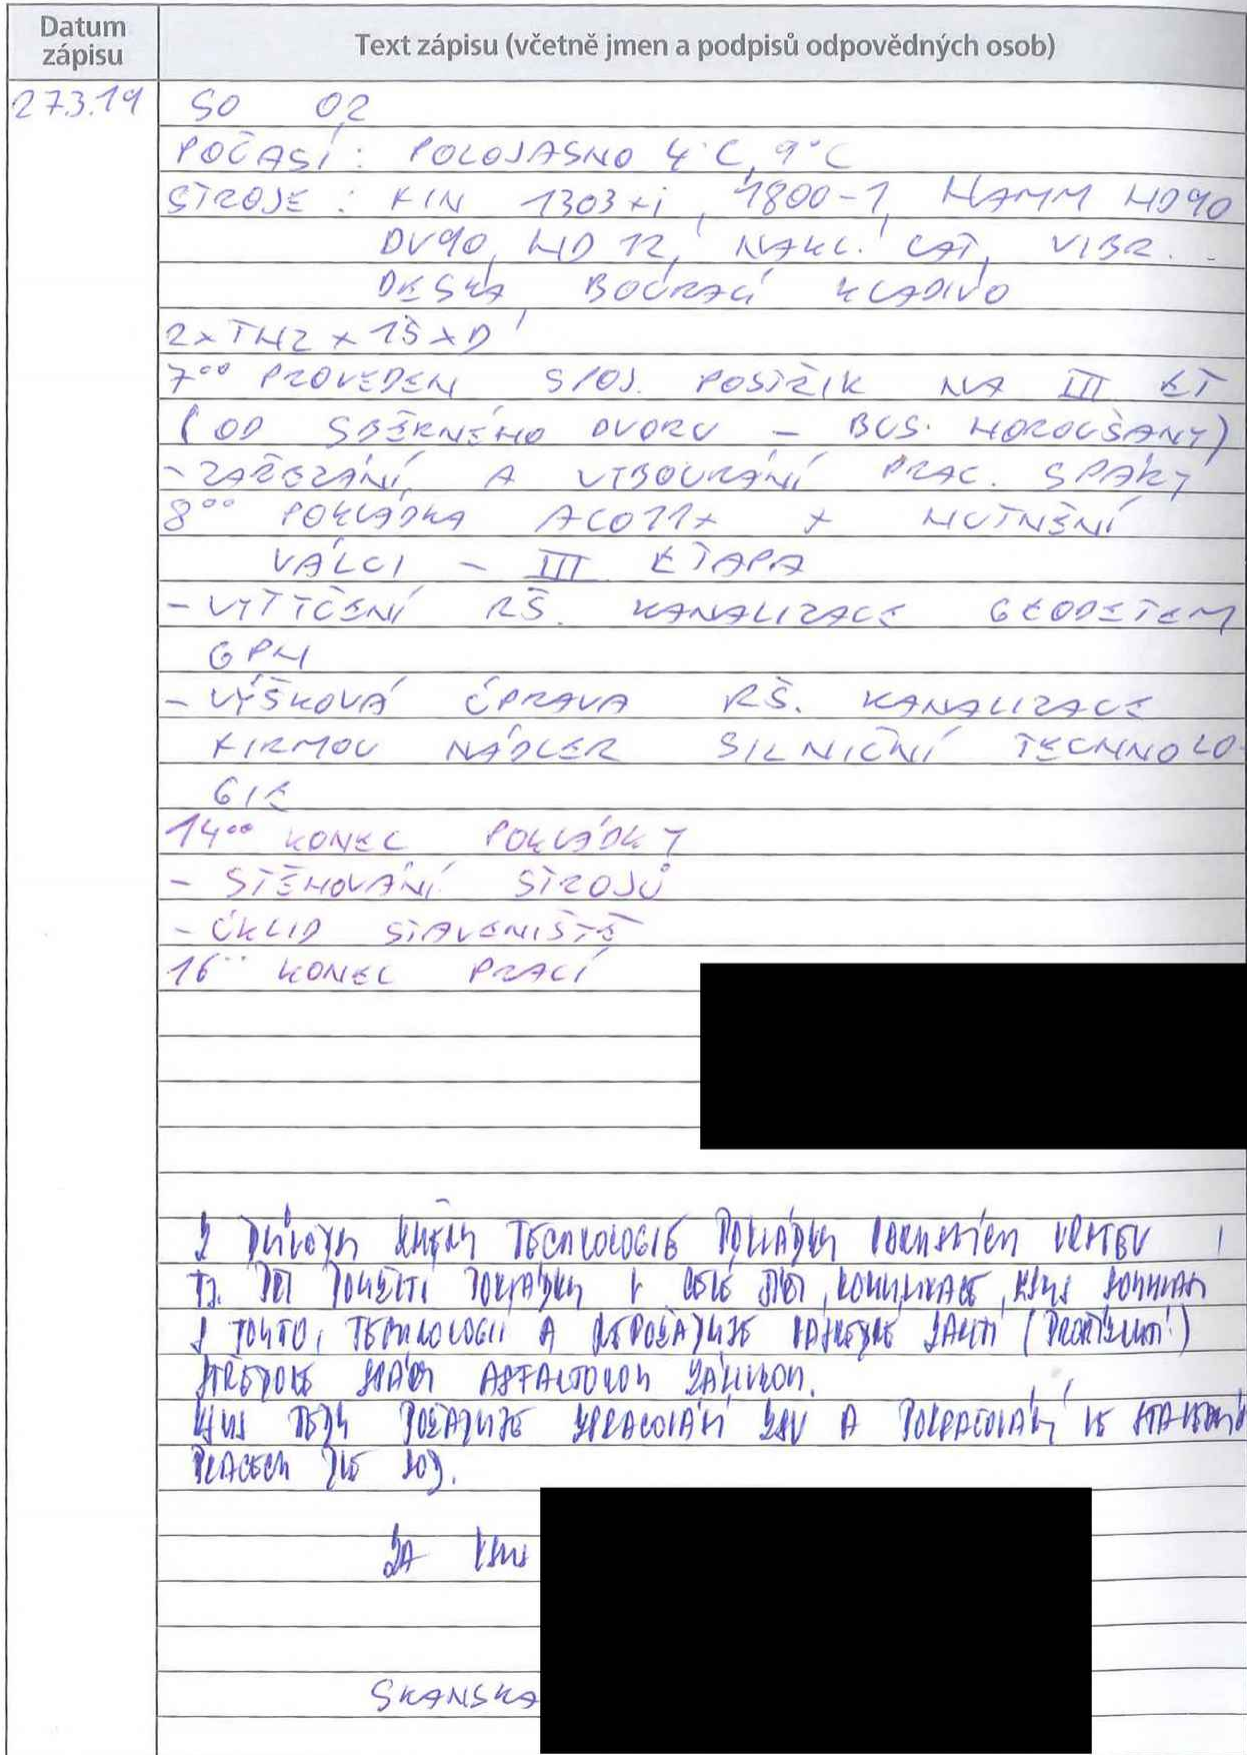 Datum zápisu
Text zápisu (včetně jmen a podpisů odpovědných osob)
27.3.19 SO 02
POČASÍ: POLOJASNO 4°C, 9°C
STROJE: FIN 1303+i, 1800-1, HAMM HD90
DV90, HD 12, NAKL. CAT, VIBR.
DESKA BOURACÍ KLADIVO
2xTHZ + 1Š+D
7⁰⁰ PROVEDEN SPOJ. POSTŘIK NA III ET
(OD SBĚRNÉHO DVORU - BUS. HOROUŠANY)
- ZAŘEZÁNÍ A VYBOURÁNÍ PRAC. SPÁRY
8⁰⁰ POKLÁDKA ACO11+ + HUTNĚNÍ
VÁLCI - III ETAPA
- VYTYČENÍ RŠ. KANALIZACE GEODETEM
GPH
- VÝŠKOVÁ ÚPRAVA RŠ. KANALIZACE
FIRMOU NÁDLER SILNIČNÍ TECHNOLO-
GIE
14⁰⁰ KONEC POKLÁDKY
- STĚHOVÁNÍ STROJŮ
- ÚKLID STAVENIŠTĚ
16⁰⁰ KONEC PRACÍ
Z DŮVODU ZMĚNY TECHNOLOGIE POKLÁDKY VRSTEV
TJ. POUŽITÍ POKLÁDKY V CELÉ KOMUNIKACE, KSUS SOUHLASÍ
S TOUTO TECHNOLOGIÍ A NEPOŽADUJE ZALITÍ
STŘEDOVÉ SPÁRY ASFALTOVOU ZÁLIVKOU.
KSUS TEDY POŽADUJE ZPRACOVÁNÍ ZBV A POKRAČOVÁNÍ VE
PRACECH DLE SOD.
ZA KSUS
SKANSKA